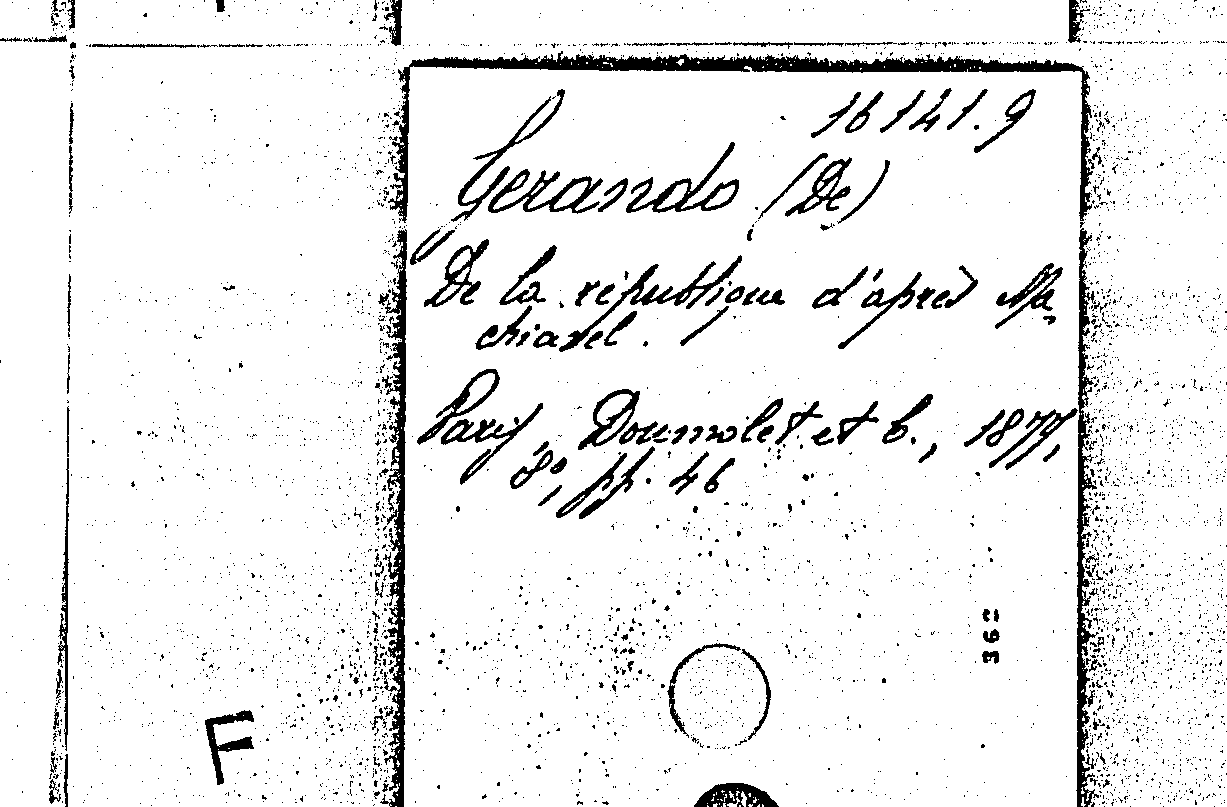 16141.9
Gerando (De)
De la république d'après Ma-
chiavel.
Paris, Doumolet et C., 1877,
8°, pp. 46
362
F